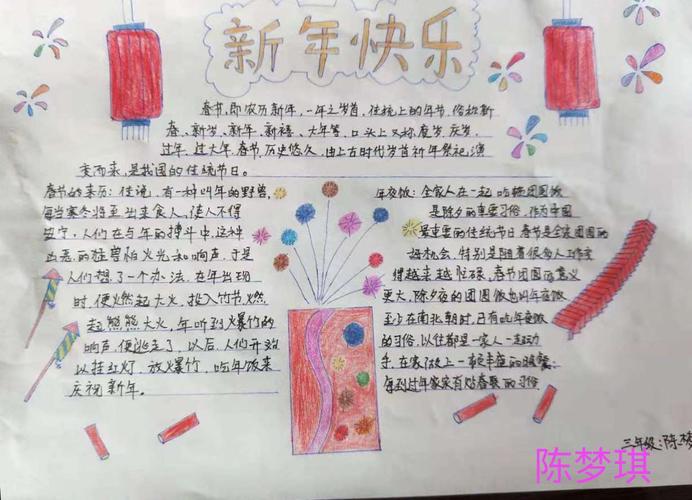 新年快乐
春节,即农历新年,一年之岁首,传统上的年节。俗称新
春、新岁、新年、新禧、大年等,口头上又称度岁、庆岁、
过年、过大年。春节历史悠久,由上古时代岁首祈年祭祀演
变而来,是我国的传统节日。
春节的来历:传说,有一种叫年的野兽,
每当寒冬将至出来食人,使人不得
安宁。人们在与年的搏斗中,这种
凶恶的怪兽怕火光和响声,于是
人们想了一个办法,在年出现
时,便燃起大火,投入竹节,燃
起熊熊大火,年听到爆竹的
响声,便逃走了,以后,人们开始
以挂红灯,放爆竹,吃年饭来
庆祝新年。
年夜饭:全家人在一起吃顿团圆饭
是除夕的重要习俗,作为中国
最重要的传统节日春节是全家团圆的
好机会,特别是随着很多人工作变
得越来越忙碌,春节团圆的意义
更大,除夕夜的团圆饭也叫年夜饭
至少在南北朝时,已有吃年夜饭
的习俗,以往都是一家人一起动
手,在家做上一顿丰盛的晚餐
每到过年家家有贴春联的习俗
三年级:陈梦
陈梦琪